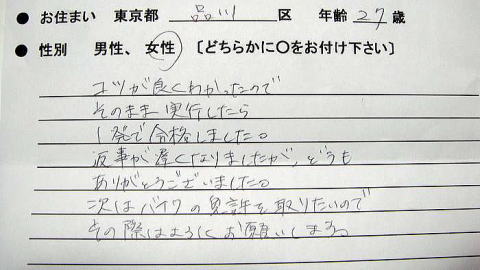 ● お住まい 東京都 品川 区 年齢 27 歳
● 性別 男性、 女性 〔どちらかに○をお付け下さい〕
コツが良くわかったので
そのまま実行したら
1発で合格しました。
返事が遅くなりましたが、どうも
ありがとうございました。
次はバイクの免許を取りたいので
その際はよろしくお願いします。